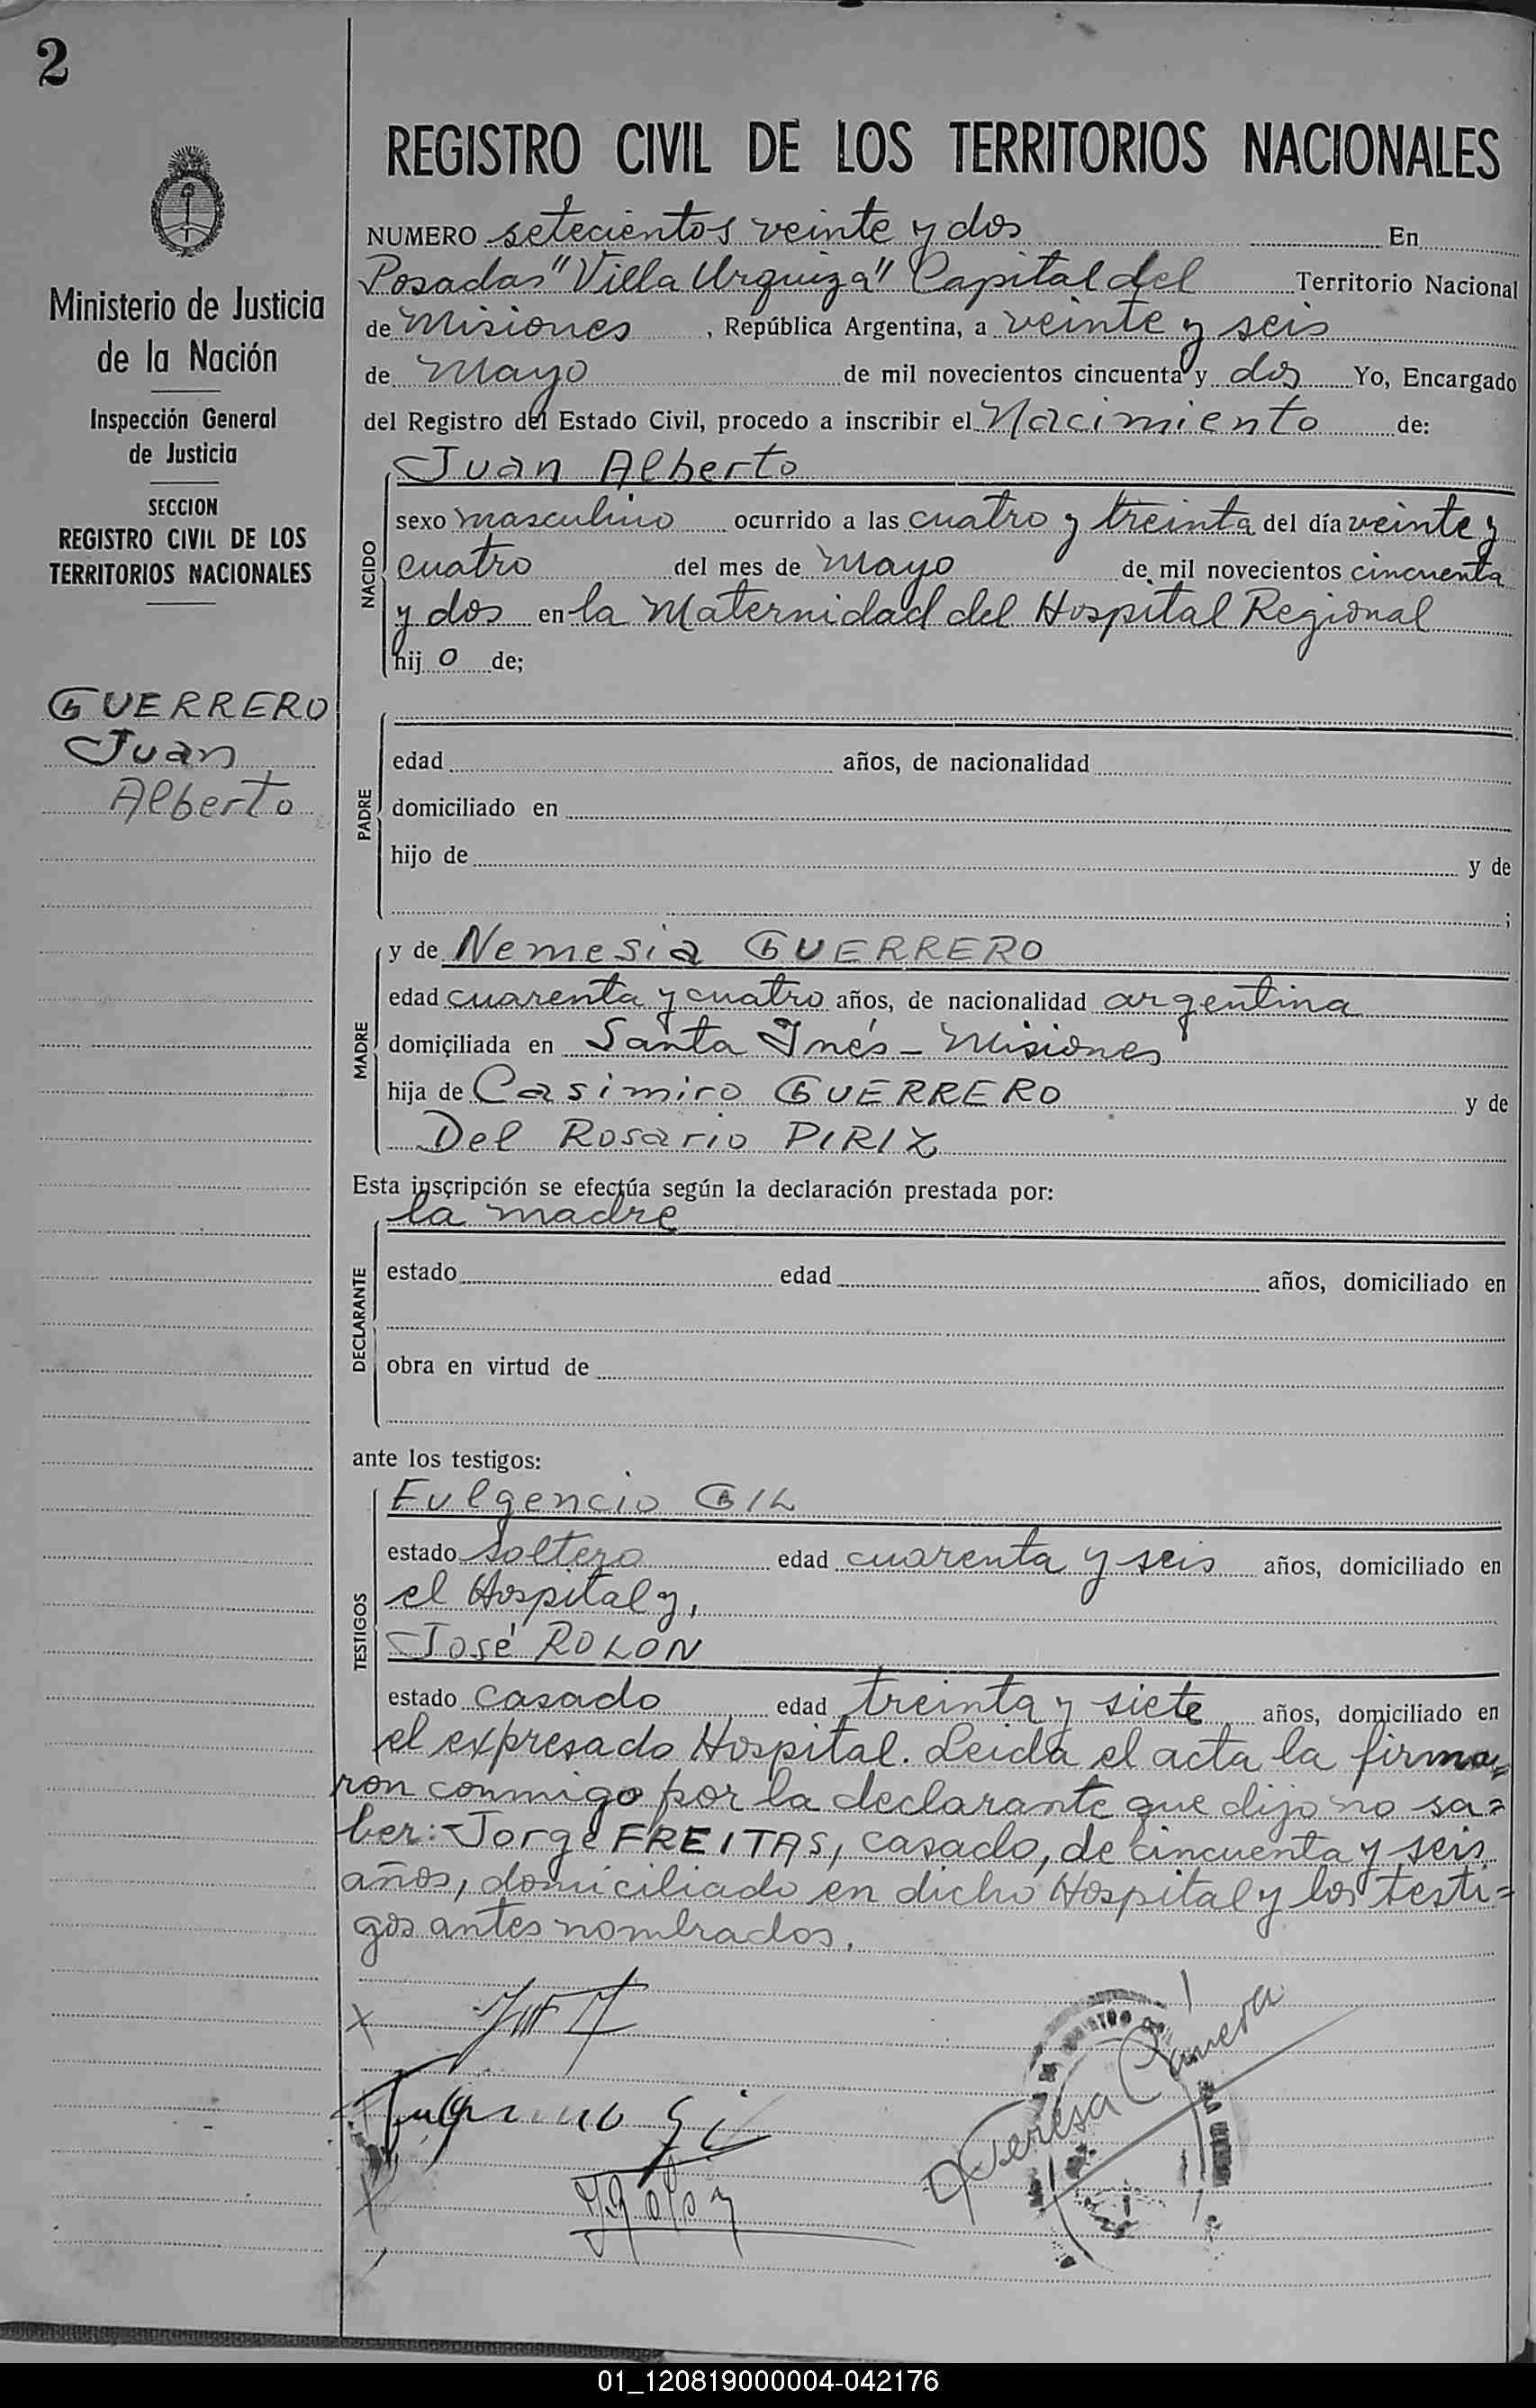 2
Ministerio de Justicia
de la Nación
Inspección General
de Justicia
SECCION
REGISTRO CIVIL DE LOS
TERRITORIOS NACIONALES
GUERRERO
Juan
Alberto
REGISTRO CIVIL DE LOS TERRITORIOS NACIONALES
NUMERO setecientos veinte y dos En
Posadas "Villa Urquiza" Capital del Territorio Nacional
de Misiones, República Argentina, a veinte y seis
de Mayo de mil novecientos cincuenta y dos Yo, Encargado
del Registro del Estado Civil, procedo a inscribir el Nacimiento de:
NACIDO
Juan Alberto
sexo masculino ocurrido a las cuatro y treinta del día veinte y
cuatro del mes de Mayo de mil novecientos cincuenta
y dos en la Maternidad del Hospital Regional
hij o de;
PADRE
edad años, de nacionalidad
domiciliado en
hijo de y de
;
MADRE
y de Nemesia GUERRERO
edad cuarenta y cuatro años, de nacionalidad argentina
domiciliada en Santa Inés - Misiones
hija de Casimiro GUERRERO y de
Del Rosario PIRIZ
Esta inscripción se efectúa según la declaración prestada por:
DECLARANTE
la madre
estado edad años, domiciliado en
obra en virtud de
ante los testigos:
TESTIGOS
Fulgencio GIL
estado soltero edad cuarenta y seis años, domiciliado en
el Hospital y,
José ROLON
estado casado edad treinta y siete años, domiciliado en
el expresado Hospital. Leida el acta la firma=
ron conmigo por la declarante que dijo no sa=
ber: Jorge FREITAS, casado, de cincuenta y seis
años, domiciliado en dicho Hospital y los testi=
gos antes nombrados.
Teresa
01_120819000004-042176